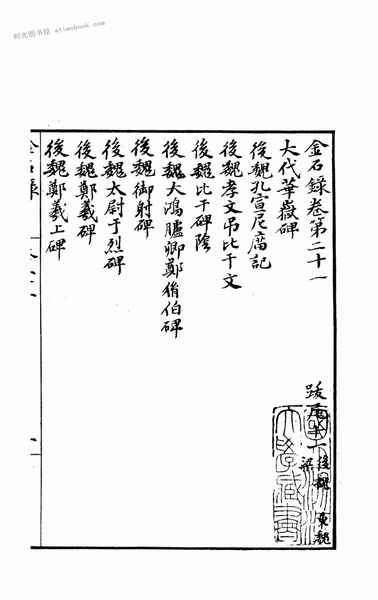 时光图书馆 atimebook.com
金石錄卷第二十一
跋尾十一 後魏 東魏 梁
大代華嶽碑
後魏孔宣尼廟記
後魏孝文吊比干文
後魏比干碑陰
後魏大鴻臚卿鄭胤伯碑
後魏御射碑
後魏太尉于烈碑
後魏鄭羲碑
後魏鄭羲上碑